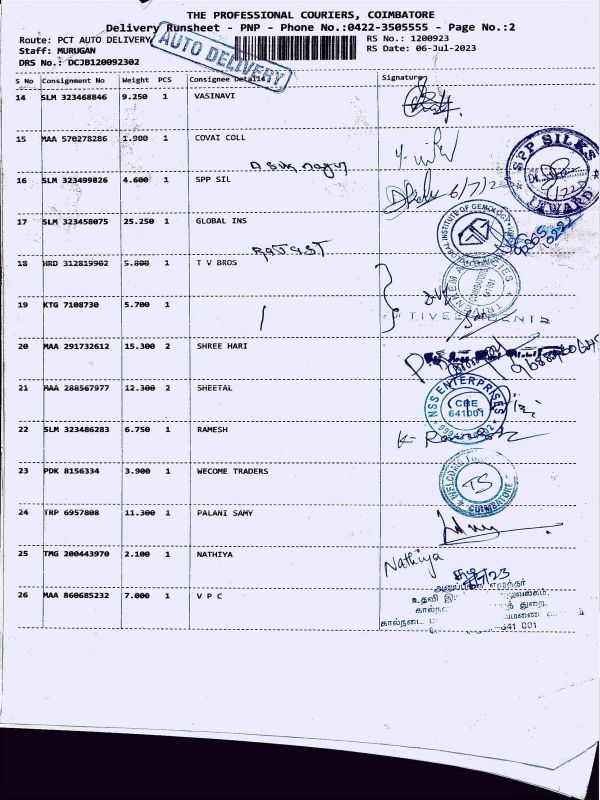 THE PROFESSIONAL COURIERS, COIMBATORE
Delivery Runsheet - PNP - Phone No.:0422-3505555 - Page No.:2
Route: PCT AUTO DELIVERY
RS No.: 1200923
Staff: MURUGAN
RS Date: 06-Jul-2023
DRS No.: DCJB120092302
AUTO DELIVERY
S No Consignment No Weight PCS Consignee Details Signature
14 SLM 323468846 9.250 1 VASINAVI
15 MAA 570278286 1.900 1 COVAI COLL
16 SLM 323499826 4.600 1 SPP SIL
SPP SILKS
17 SLM 323458075 25.250 1 GLOBAL INS
GLOBAL INSTITUTE OF GEMOLOGY
18 HRD 312819902 5.800 1 T V BROS
19 KTG 7108730 5.700 1
20 MAA 291732612 15.300 2 SHREE HARI
21 MAA 288567977 12.300 2 SHEETAL
NSS ENTERPRISES
CBE
641001
22 SLM 323486283 6.750 1 RAMESH
23 PDK 8156334 3.900 1 WECOME TRADERS
TS
COIMBATORE
24 TRP 6957808 11.300 1 PALANI SAMY
25 TMG 200443970 2.100 1 NATHIYA
Nathiya
26 MAA 860685232 7.000 1 V P C
உதவி
துறை.
கால்நடை
641 001